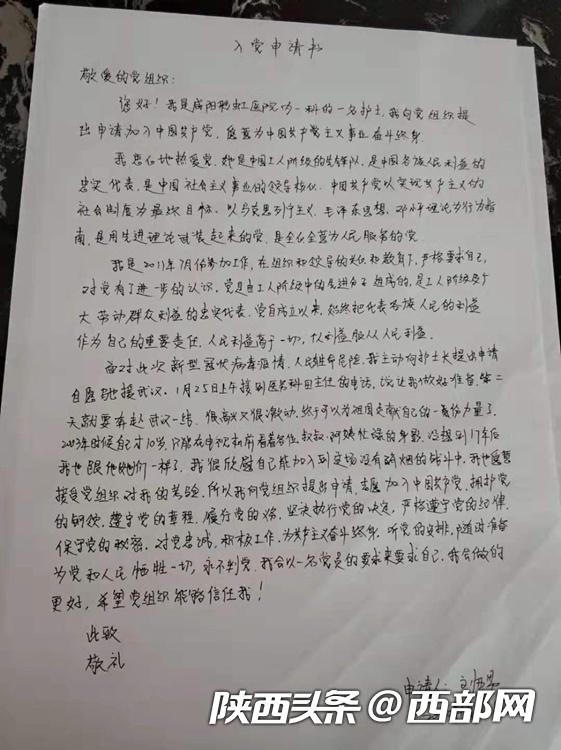 入党申请书
敬爱的党组织:
您好!我是咸阳彩虹医院内一科的一名护士,我向党组织提
出申请加入中国共产党,愿意为中国共产主义事业奋斗终身.
我热爱党,她是中国工人阶级的先锋队,是中国各族人民利益的
忠实代表,是中国社会主义事业的领导核心.中国共产党以实现共产主义的
社会制度为最终目标,以马克思列宁主义、毛泽东思想、邓小平理论为行为指
南,是用先进理论武装起来的党,是全心全意为人民服务的党.
我是2011年7月份参加工作,在组织和领导的关怀和教育下,严格要求自己,
对党有了进一步的认识,党是由工人阶级中的先进分子组成的,是工人阶级及广
大劳动群众利益的忠实代表.党自成立以来,始终把代表各族人民的利益
作为自己的重要责任,人民利益高于一切,个人利益服从人民利益.
面对此次新型冠状病毒疫情,人民生命危险,我主动向护士长提出申请
自愿驰援武汉.1月25日上午接到医务科田主任的电话,说让我做好准备,第二
天就要奔赴武汉一线.很高兴又很激动,终于可以为祖国贡献自己的一份力量了.
2003年时候自己才10岁,只能在电视机前看着各位叔叔、阿姨忙碌的身影,没想到17年后
我也跟他她们一样了.我很欣慰自己能加入到这场没有硝烟的战斗中,我也愿意
接受党组织对我的考验,所以我向党组织提出申请,志愿加入中国共产党,拥护党
的纲领,遵守党的章程,履行党的义务,坚决执行党的决定,严格遵守党的纪律,
保守党的秘密,对党忠诚,积极工作,为共产主义奋斗终身,听党的安排,随时准备
为党和人民牺牲一切,永不叛党.我会以一名党员的要求来要求自己,我会做的
更好,希望党组织能够信任我!
此致
敬礼
申请人:
陕西头条 @西部网